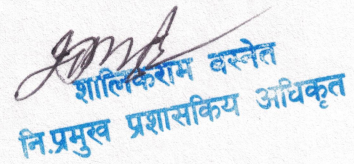 शालिकराम बस्नेत
नि.प्रमुख प्रशासकिय अधिकृत